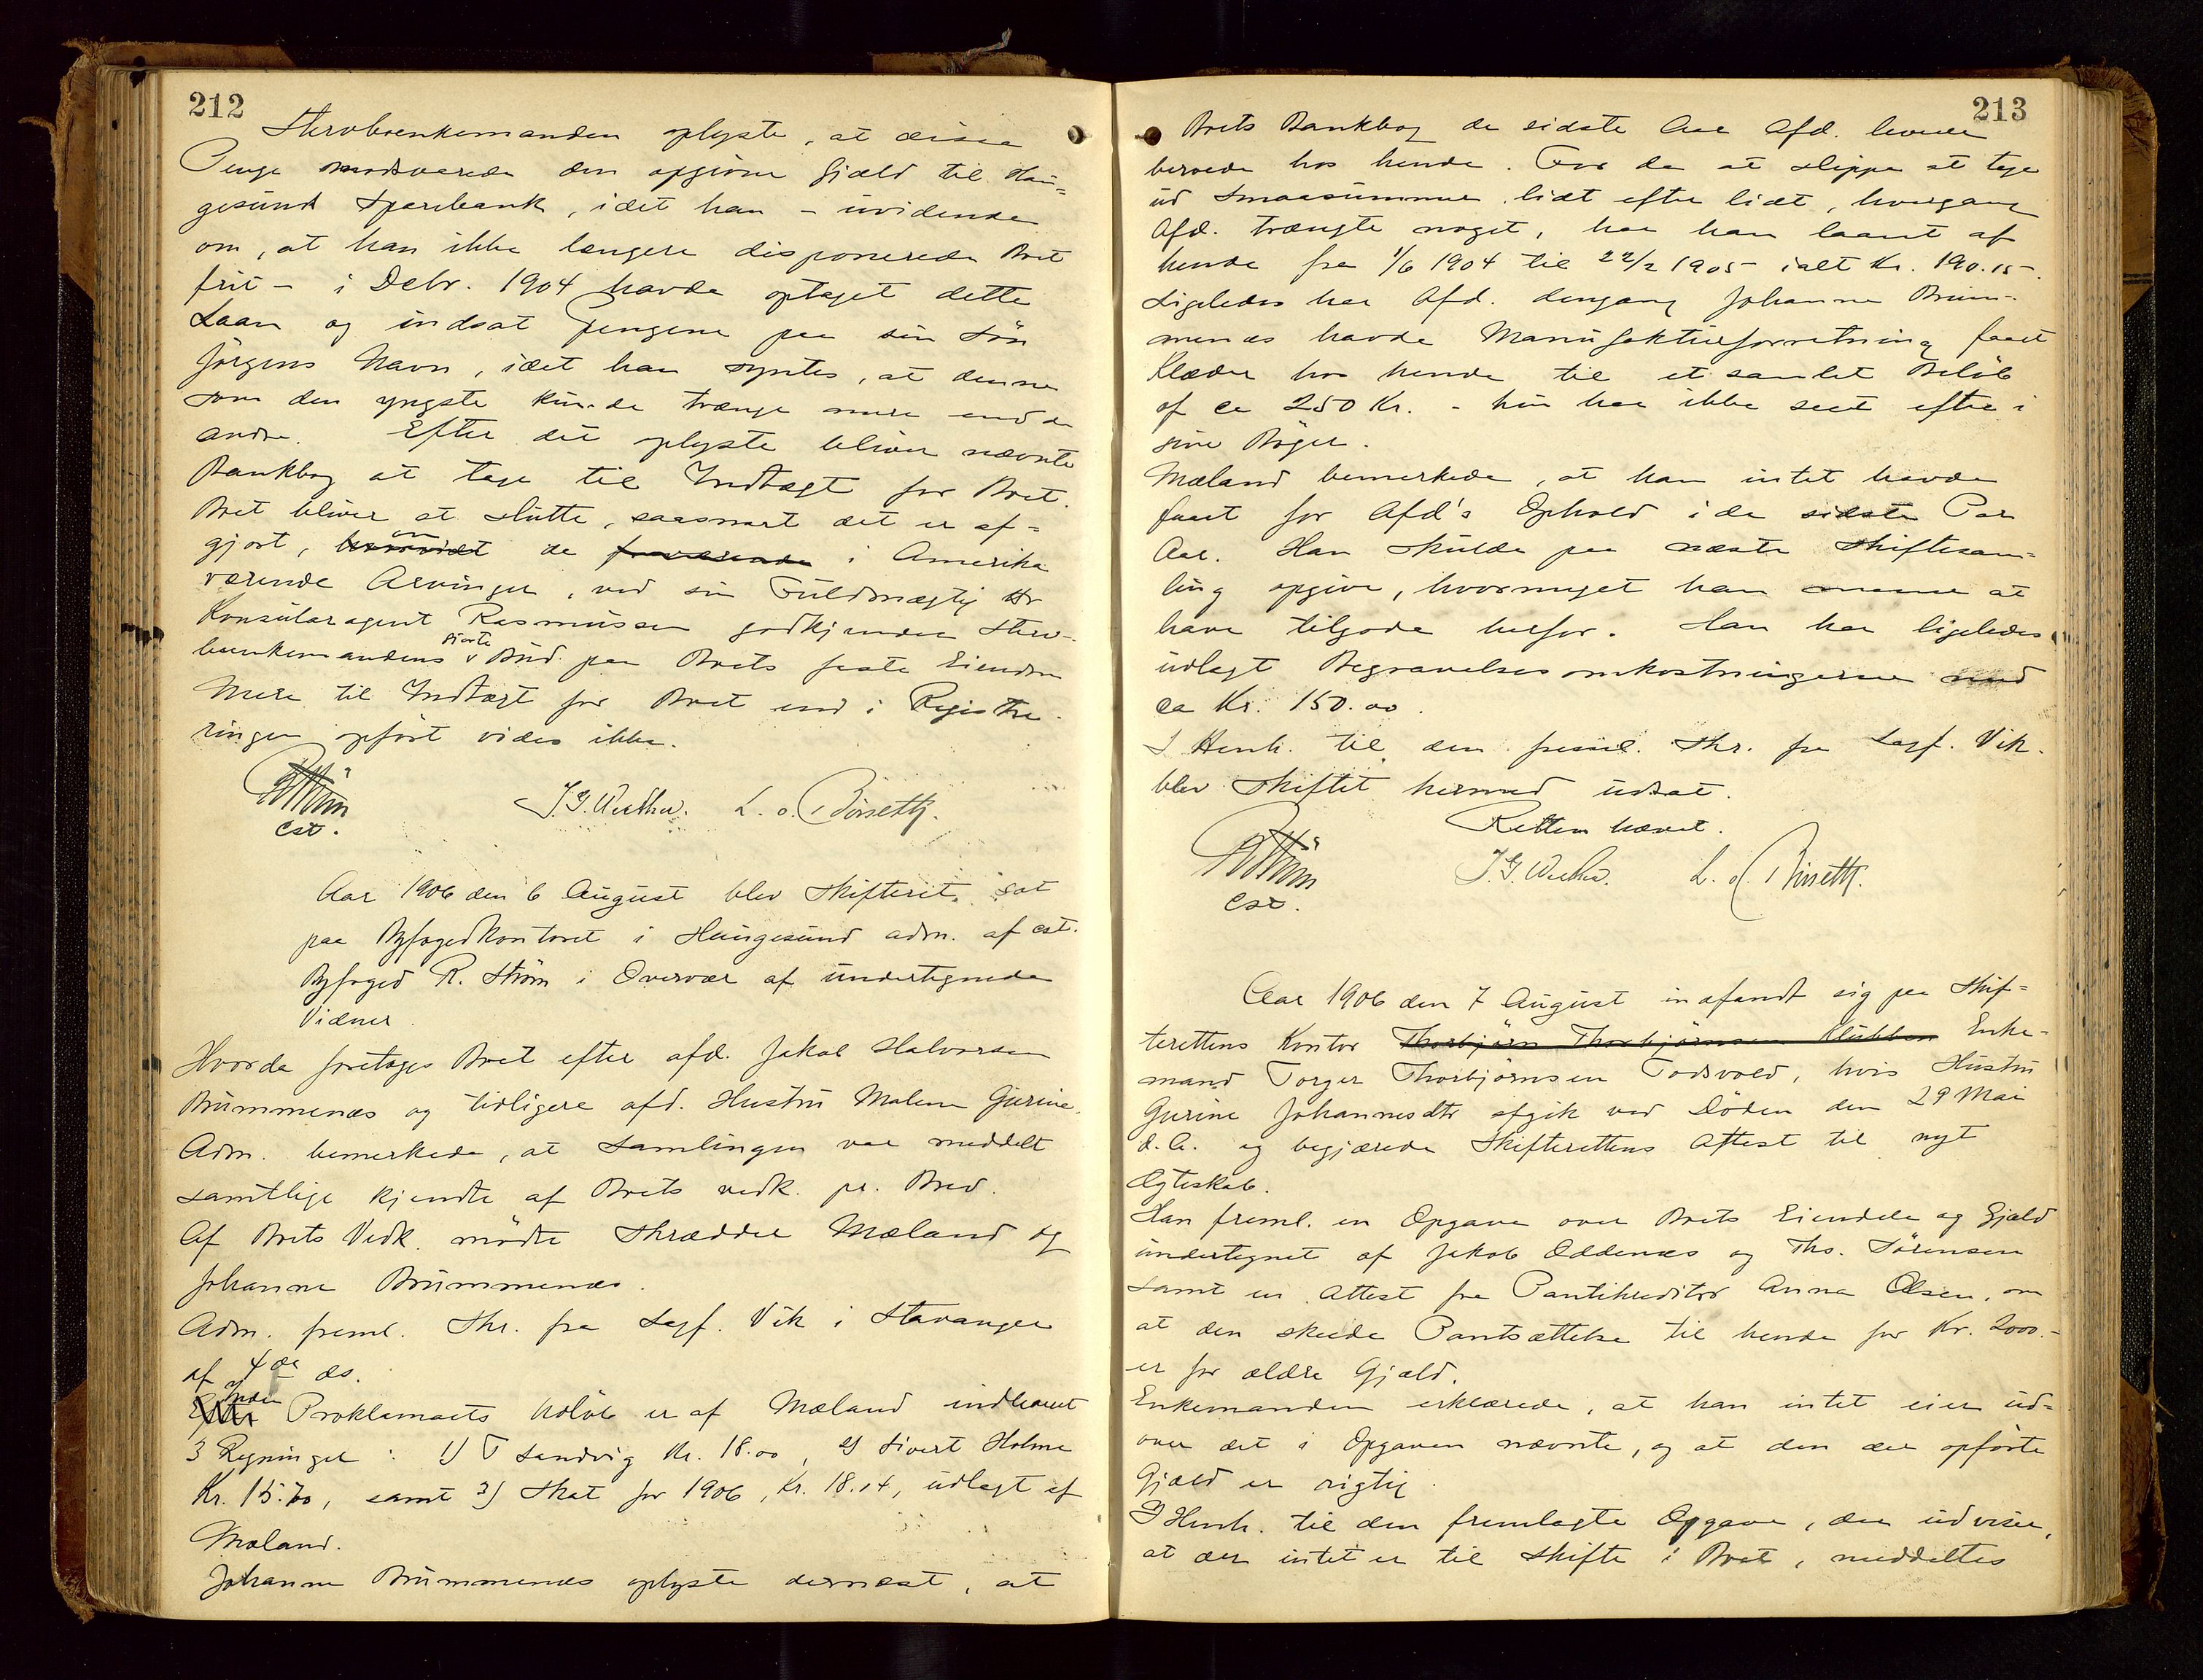 212
Stervboenkemanden oplyste, at disse
Penge modsvarede den opgivne Gjæld til Hau=
gesund Sparebank, idet han - uvidende
om, at han ikke længere disponerede Boet
frit - i Debr. 1904 havde optaget dette
Laan og indsat Pengene paa sin Søn
Jørgens Navn, idet han syntes, at denne
som den yngste kunde trænge mere end de
andre. Efter det oplyste bliver nævnte
Bankbog at tage til Indtægt for Boet.
Boet bliver at slutte, saasnart det er af=
gjort, hvorvidt om de fraværende i Amerika
værende Arvinger, ved sin Fuldmægtig Hr
Konsularagent Rasmussen godkjender Sterv-
boenkemandens gjorte Bud paa Boets faste Eiendom
Mere til Indtægt for Boet end i Registre-
ringen opført vides ikke.
R Strøm
cst.
J. G. Wether. L. O. Børseth.
Aar 1906 den 6 August blev Skifteret sat
paa Byfogedkontoret i Haugesund adm. af cst.
Byfoged R. Strøm i Overvær af undertegnede
Vidner.
Hvorda foretoges Boet efter afd. Jakob Halvorsen
Brummenæs og tidligere afd. Hustru Malene Gurine.
Adm. bemerkede, at Samlingen var meddelt
samtlige kjendte af Boets vedk. pr. Brev.
Af Boets Vedk. mødte Skrædder Mæland og
Johanne Brummenæs.
Adm. freml. Skr. fra Sagf. Vik i Stavanger
af 4de ds.
Efter Inden Proklamaets Udløb er af Mæland indleveret
3 Regninger: 1) T Sandvig Kr. 18.00, 2) Sivert Holme
Kr. 15.70, samt 3) Skat for 1906, Kr. 18.14, udlagt af
Mæland.
Johanne Brummenæs oplyste dernæst, at
213
Boets Bankbog de sidste Aar Afd. levede
beroede hos hende. For da at slippe at tage
ud Smaasummer lidt efter lidt, hvergang
Afd. trængte noget, har han laant af
hende fra 1/6 1904 til 22/2 1905 ialt Kr. 190.15.
Ligeledes har Afd. dengang Johanne Brum-
menæs havde Manufakturforretning faaet
Klæder hos hende til et samlet Beløb
af ca 250 Kr. - hun har ikke seet efter i
sine Bøger.
Mæland bemerkede, at han intet havde
faaet for Afd's Ophold i de sidste Par
Aar. Han skulde paa næste Skiftesam=
ling opgive, hvormeget han mener at
have tilgode herfor. Han har ligeledes
udlagt Begravelsesomkostningerne med
ca Kr. 150.00.
I Henh. til den freml. Skr. fra Sagf. Vik.
blev Skiftet hermed udsat.
Retten hævet.
R Strøm
cst.
J. G. Wether. L. O. Børseth.
Aar 1906 den 7 August indfandt sig paa Skif=
terettens Kontor Thorbjørn Thorbjørnsen Klubben Enke=
mand Torger Thorbjørnsen Todsvold, hvis Hustru
Gurine Johannesdtr afgik ved Døden den 29 Mai
d. A. og begjærede Skifterettens Attest til nyt
Ægteskab.
Han freml. en Opgave over Boets Eiendele og Gjæld
undertegnet af Jakob Oddenæs og Ths. Sørensen
samt en Attest fra Pantekreditor Anna Olsen, om
at den skeede Pantsættelse til hende for Kr. 2000.-
er for ældre Gjæld.
Enkemanden erklærede, at han intet eier ud=
over det i Opgaven nævnte, og at den der opførte
Gjæld er rigtig.
I Henh. til den fremlagte Opgave, der udviser,
at der intet er til Skifte i Boet, meddeltes